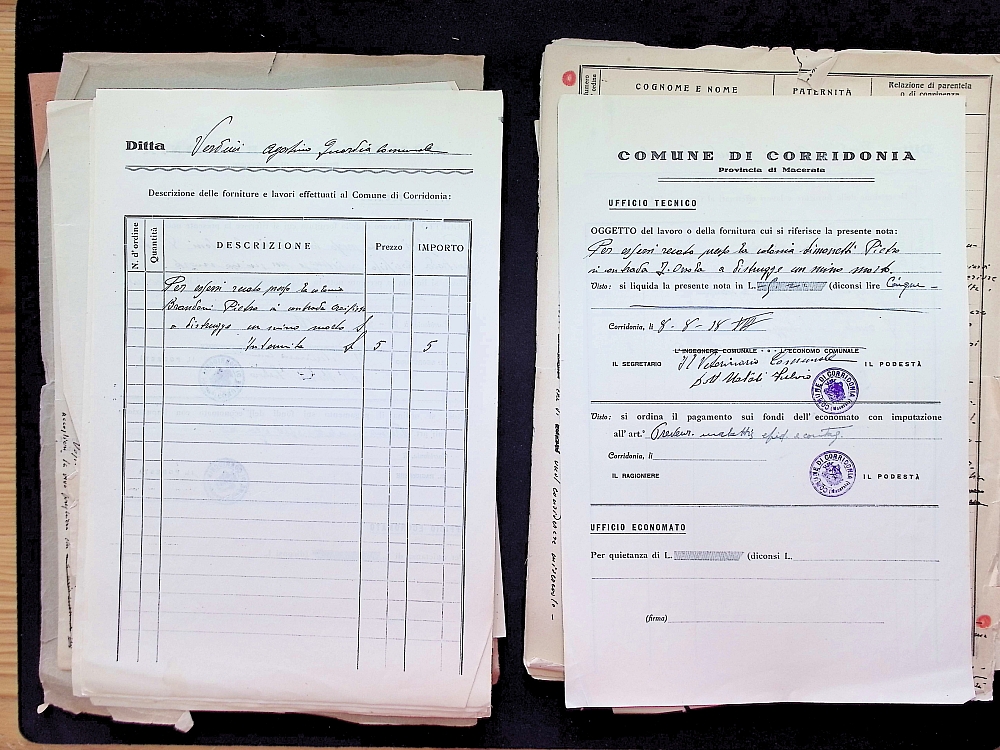 Ditta Verdini Agostino Guardia Comunale
Descrizione delle forniture e lavori effettuati al Comune di Corridonia:
N. d'ordine
Quantità
DESCRIZIONE
Prezzo
IMPORTO
Per essersi recato presso la colonia
Brandoni Pietro in contrada
a distrugge un suino morto
Indennità £ 5 5
COGNOME E NOME
PATERNITÀ
Relazione di parentela
o di convivenza
COMUNE DI CORRIDONIA
Provincia di Macerata
UFFICIO TECNICO
OGGETTO del lavoro o della fornitura cui si riferisce la presente nota:
Per essersi recato presso la colonia Simonetti Pietro
in contrada a distrugge un suino morto.
Visto: si liquida la presente nota in L. (diconsi lire Cinque
Corridonia, li 8-8-38 XVI
L'INGEGNERE COMUNALE - L'ECONOMO COMUNALE
IL SEGRETARIO Il Veterinario Comunale IL PODESTÀ
Dott Natali Fulvio
COMUNE DI CORRIDONIA (Macerata)
Visto: si ordina il pagamento sui fondi dell'economato con imputazione
all'art.° Prevenz. malattie epid. e contag.
Corridonia, li
IL RAGIONIERE IL PODESTÀ
COMUNE DI CORRIDONIA (Macerata)
UFFICIO ECONOMATO
Per quietanza di L. (diconsi L.
(firma)